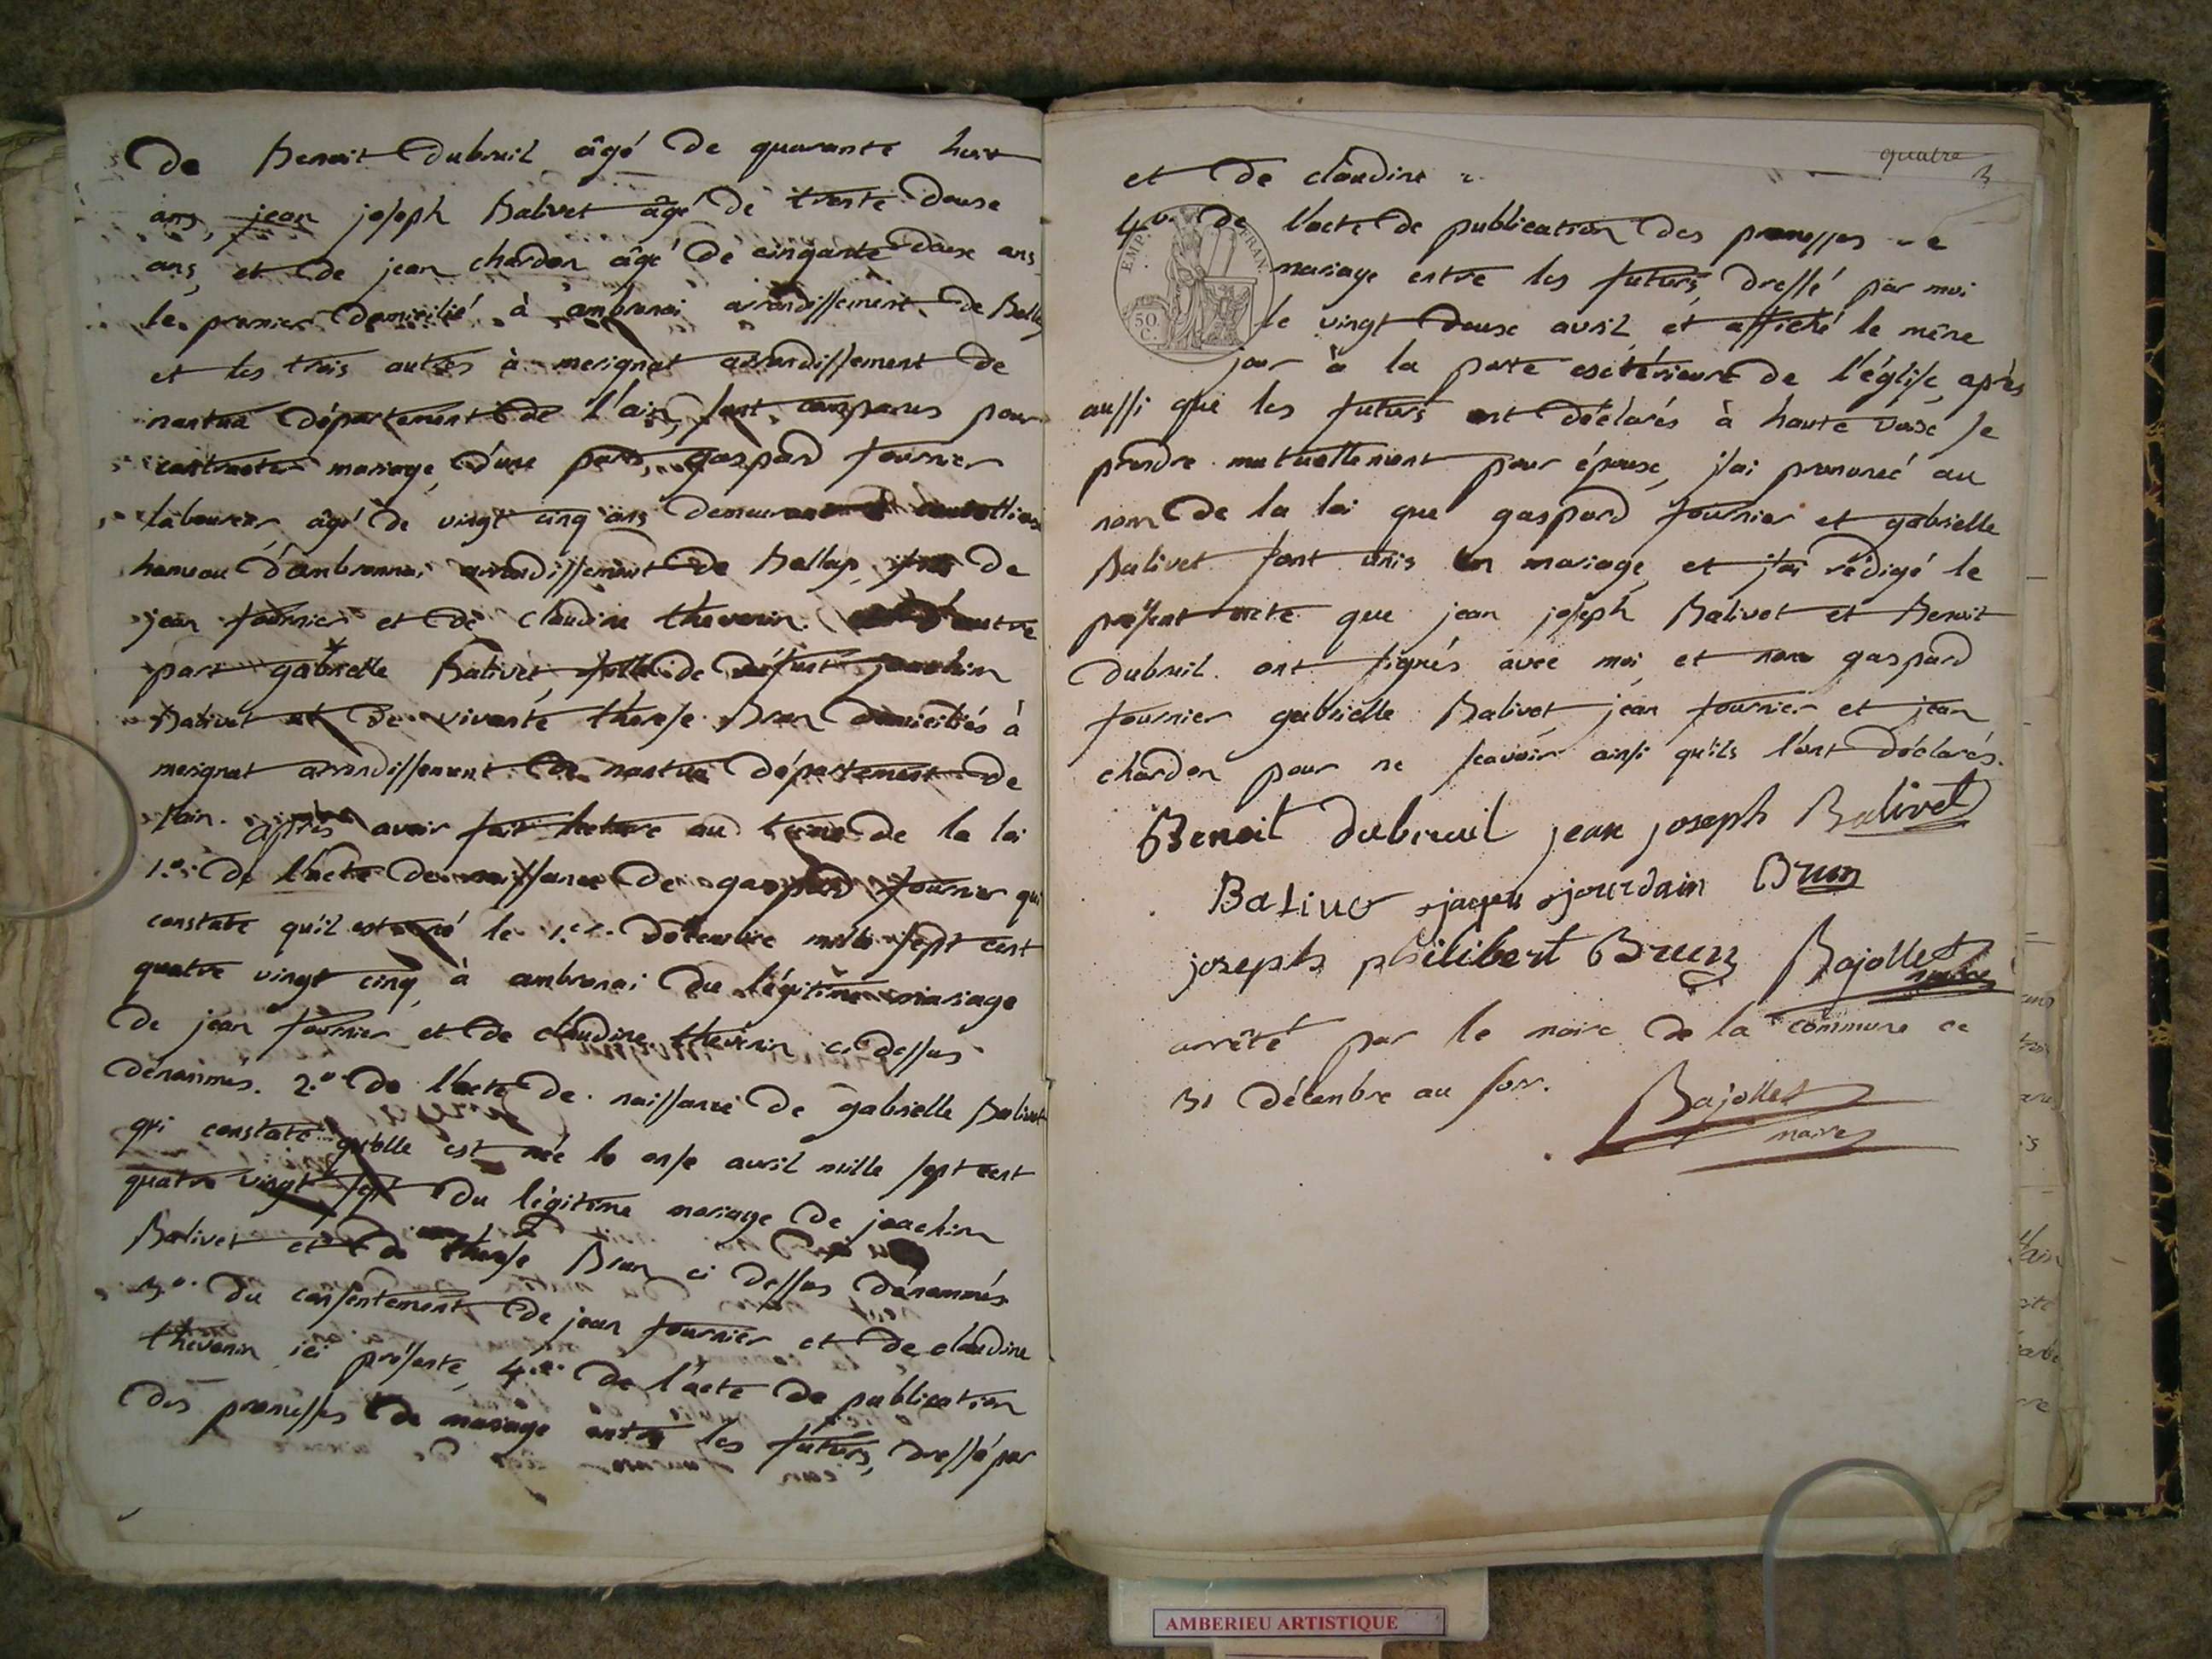 De Benoit Dubreuil âgé De quarante huit
ans, jean joseph Balivet âgé De trente Deuse
ans, et De jean chardon âgé De cinqante Deux ans
le premier Domicilié à ambronai arrondissement De Belley
et les trois autres à merignat arrondissement De
nantua Département De l'ain, sont comparus pour
contracter mariage, D'une part, gaspard fournier
laboureur, âgé De vingt cinq ans Demeurant
hameau D'ambronnai arrondissement De Belley, fils De
jean fournier et De Claudine thevenin. D'autre
part gabrielle Balivet, fille De Défunt joachin
Balivet et De vivante therese Brun Domiciliés à
merignat arrondissement De nantua Département De
l'ain. après avoir fait lecture au terme De la loi
1.º De l'acte De naissance De gaspard fournier qui
constate qu'il est né le 1.er Décembre mille sept cent
quatre vingt cinq, à ambronai Du légitime mariage
De jean fournier et De claudine thevenin ci Dessus
Dénommés. 2.º De l'acte De naissance De gabrielle Balivet
qui constate qu'elle est née le onse avril mille sept cent
quatre vingt sept Du légitime mariage De joachin
Balivet et De therese Brun ci Dessus Dénommés
3.º Du consentement De jean fournier et De claudine
thevenin ici présente, 4.º De l'acte De publication
Des promesses De mariage entre les futurs, Dressé par
quatre
3
et De claudine
4.º De l'acte De publication Des promesses De
mariage entre les futurs, Dressé par moi
EMP. FRAN.
50 C.
le vingt Deuse avril, et affiché le même
jour à la porte escitérieure De l'église, après
aussi que les futurs ont Déclarés à haute voix se
prendre mutuellement pour époux, j'ai prononcé au
nom De la loi que gaspard fournier et gabrielle
Balivet sont unis en mariage, et j'ai rédigé le
présent acte que jean joseph Balivet et Benoit
Dubreuil ont signés avec moi, et non gaspard
fournier gabrielle Balivet, jean fournier, et jean
chardon pour ne scavoir ainsi qu'ils l'ont Déclarés.
Benoit Dubreuil jean joseph Balivet
jourdain Brun
joseph philibert Brun Bajollet
maire
arrêté par le maire De la commune ce
31 Décembre au soir. Bajollet
maire
AMBERIEU ARTISTIQUE